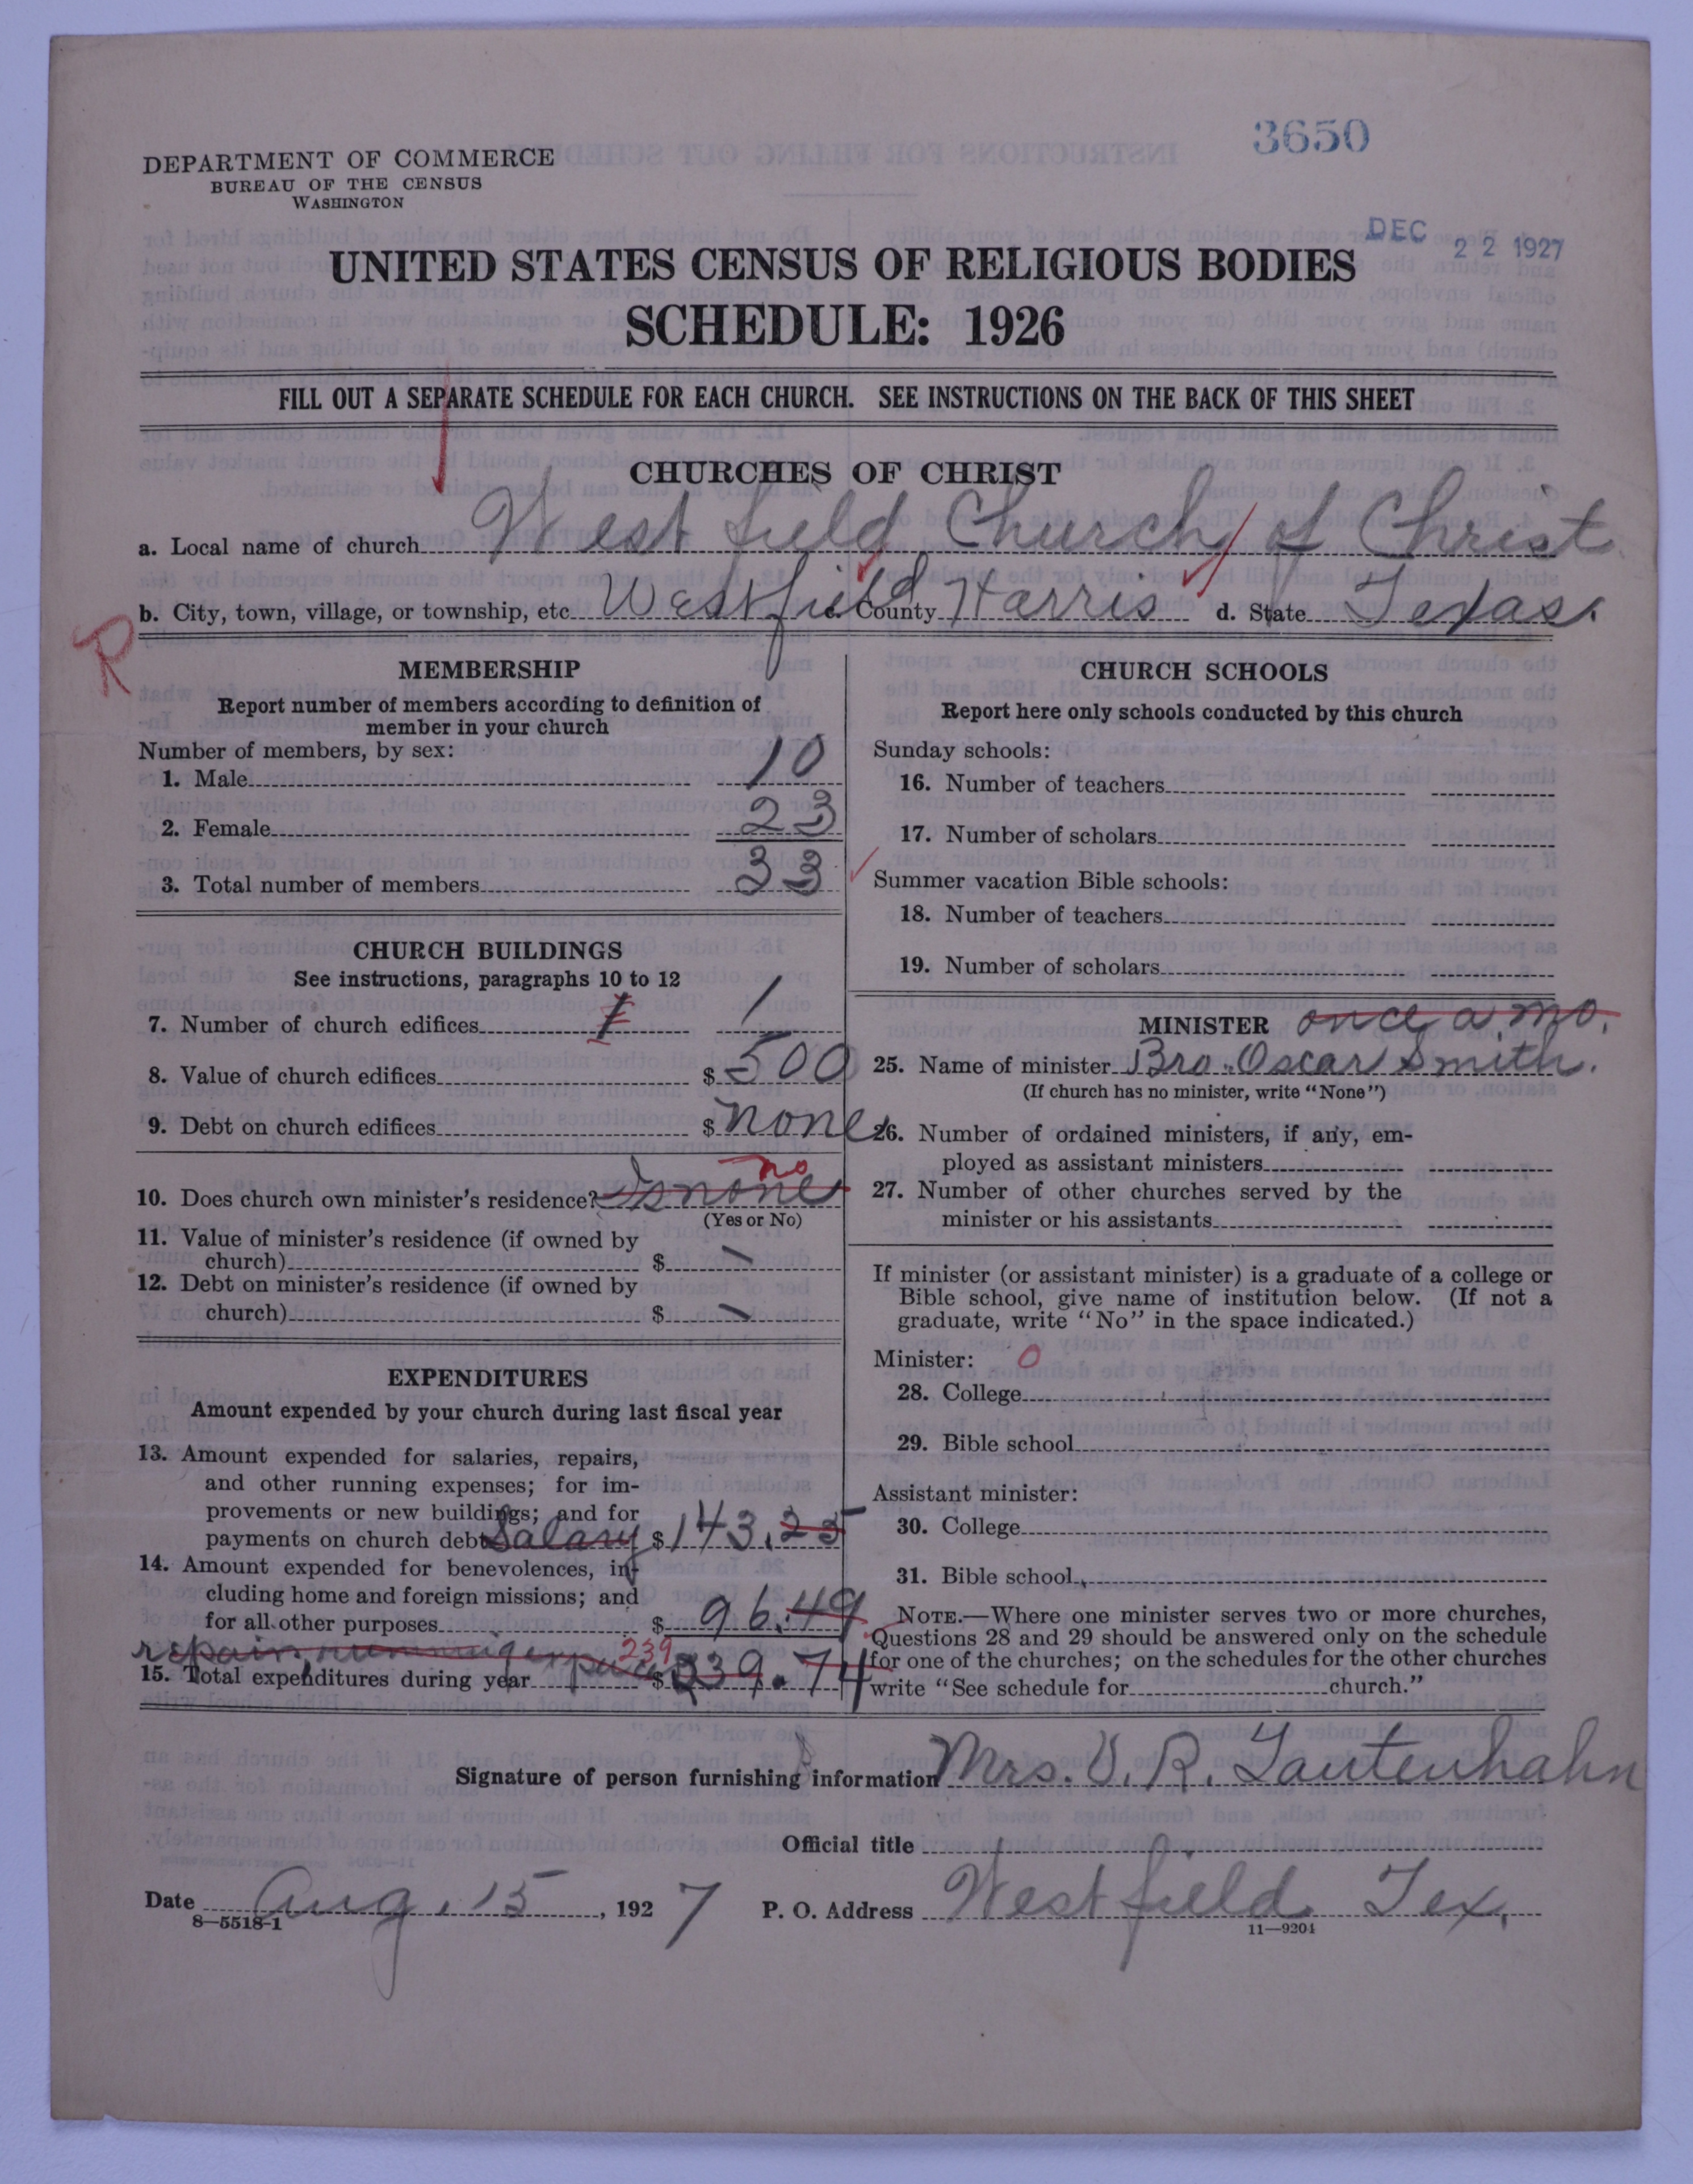 3650
DEPARTMENT OF COMMERCE
BUREAU OF THE CENSUS
WASHINGTON
DEC 22 1927
UNITED STATES CENSUS OF RELIGIOUS BODIES
SCHEDULE: 1926
FILL OUT A SEPARATE SCHEDULE FOR EACH CHURCH. SEE INSTRUCTIONS ON THE BACK OF THIS SHEET
CHURCHES OF CHRIST
a. Local name of church Westfield Church of Christ
b. City, town, village, or township, etc. Westfield c. County Harris d. State Texas.
R
MEMBERSHIP
Report number of members according to definition of
member in your church
Number of members, by sex:
1. Male 10
2. Female 23
3. Total number of members 33
CHURCH BUILDINGS
See instructions, paragraphs 10 to 12
7. Number of church edifices 1 1
8. Value of church edifices $ 500
9. Debt on church edifices $ none
10. Does church own minister's residence? Is none no
(Yes or No)
11. Value of minister's residence (if owned by
church) $ —
12. Debt on minister's residence (if owned by
church) $ —
EXPENDITURES
Amount expended by your church during last fiscal year
13. Amount expended for salaries, repairs,
and other running expenses; for im-
provements or new buildings; and for
payments on church debt Salary $ 143.25
14. Amount expended for benevolences, in-
cluding home and foreign missions; and
for all other purposes $ 96.49
repair, running expense 239
15. Total expenditures during year $ 239.74
CHURCH SCHOOLS
Report here only schools conducted by this church
Sunday schools:
16. Number of teachers
17. Number of scholars
Summer vacation Bible schools:
18. Number of teachers
19. Number of scholars
MINISTER once a mo.
25. Name of minister Bro. Oscar Smith.
(If church has no minister, write "None")
26. Number of ordained ministers, if any, em-
ployed as assistant ministers
27. Number of other churches served by the
minister or his assistants
If minister (or assistant minister) is a graduate of a college or
Bible school, give name of institution below. (If not a
graduate, write "No" in the space indicated.)
Minister: 0
28. College
29. Bible school
Assistant minister:
30. College
31. Bible school
NOTE.—Where one minister serves two or more churches,
Questions 28 and 29 should be answered only on the schedule
for one of the churches; on the schedules for the other churches
write "See schedule for church."
Signature of person furnishing information Mrs. V. R. Lautenhahn
Official title
Date Aug. 15, 1927 P. O. Address Westfield Tex.
8—5518-1
11—9204